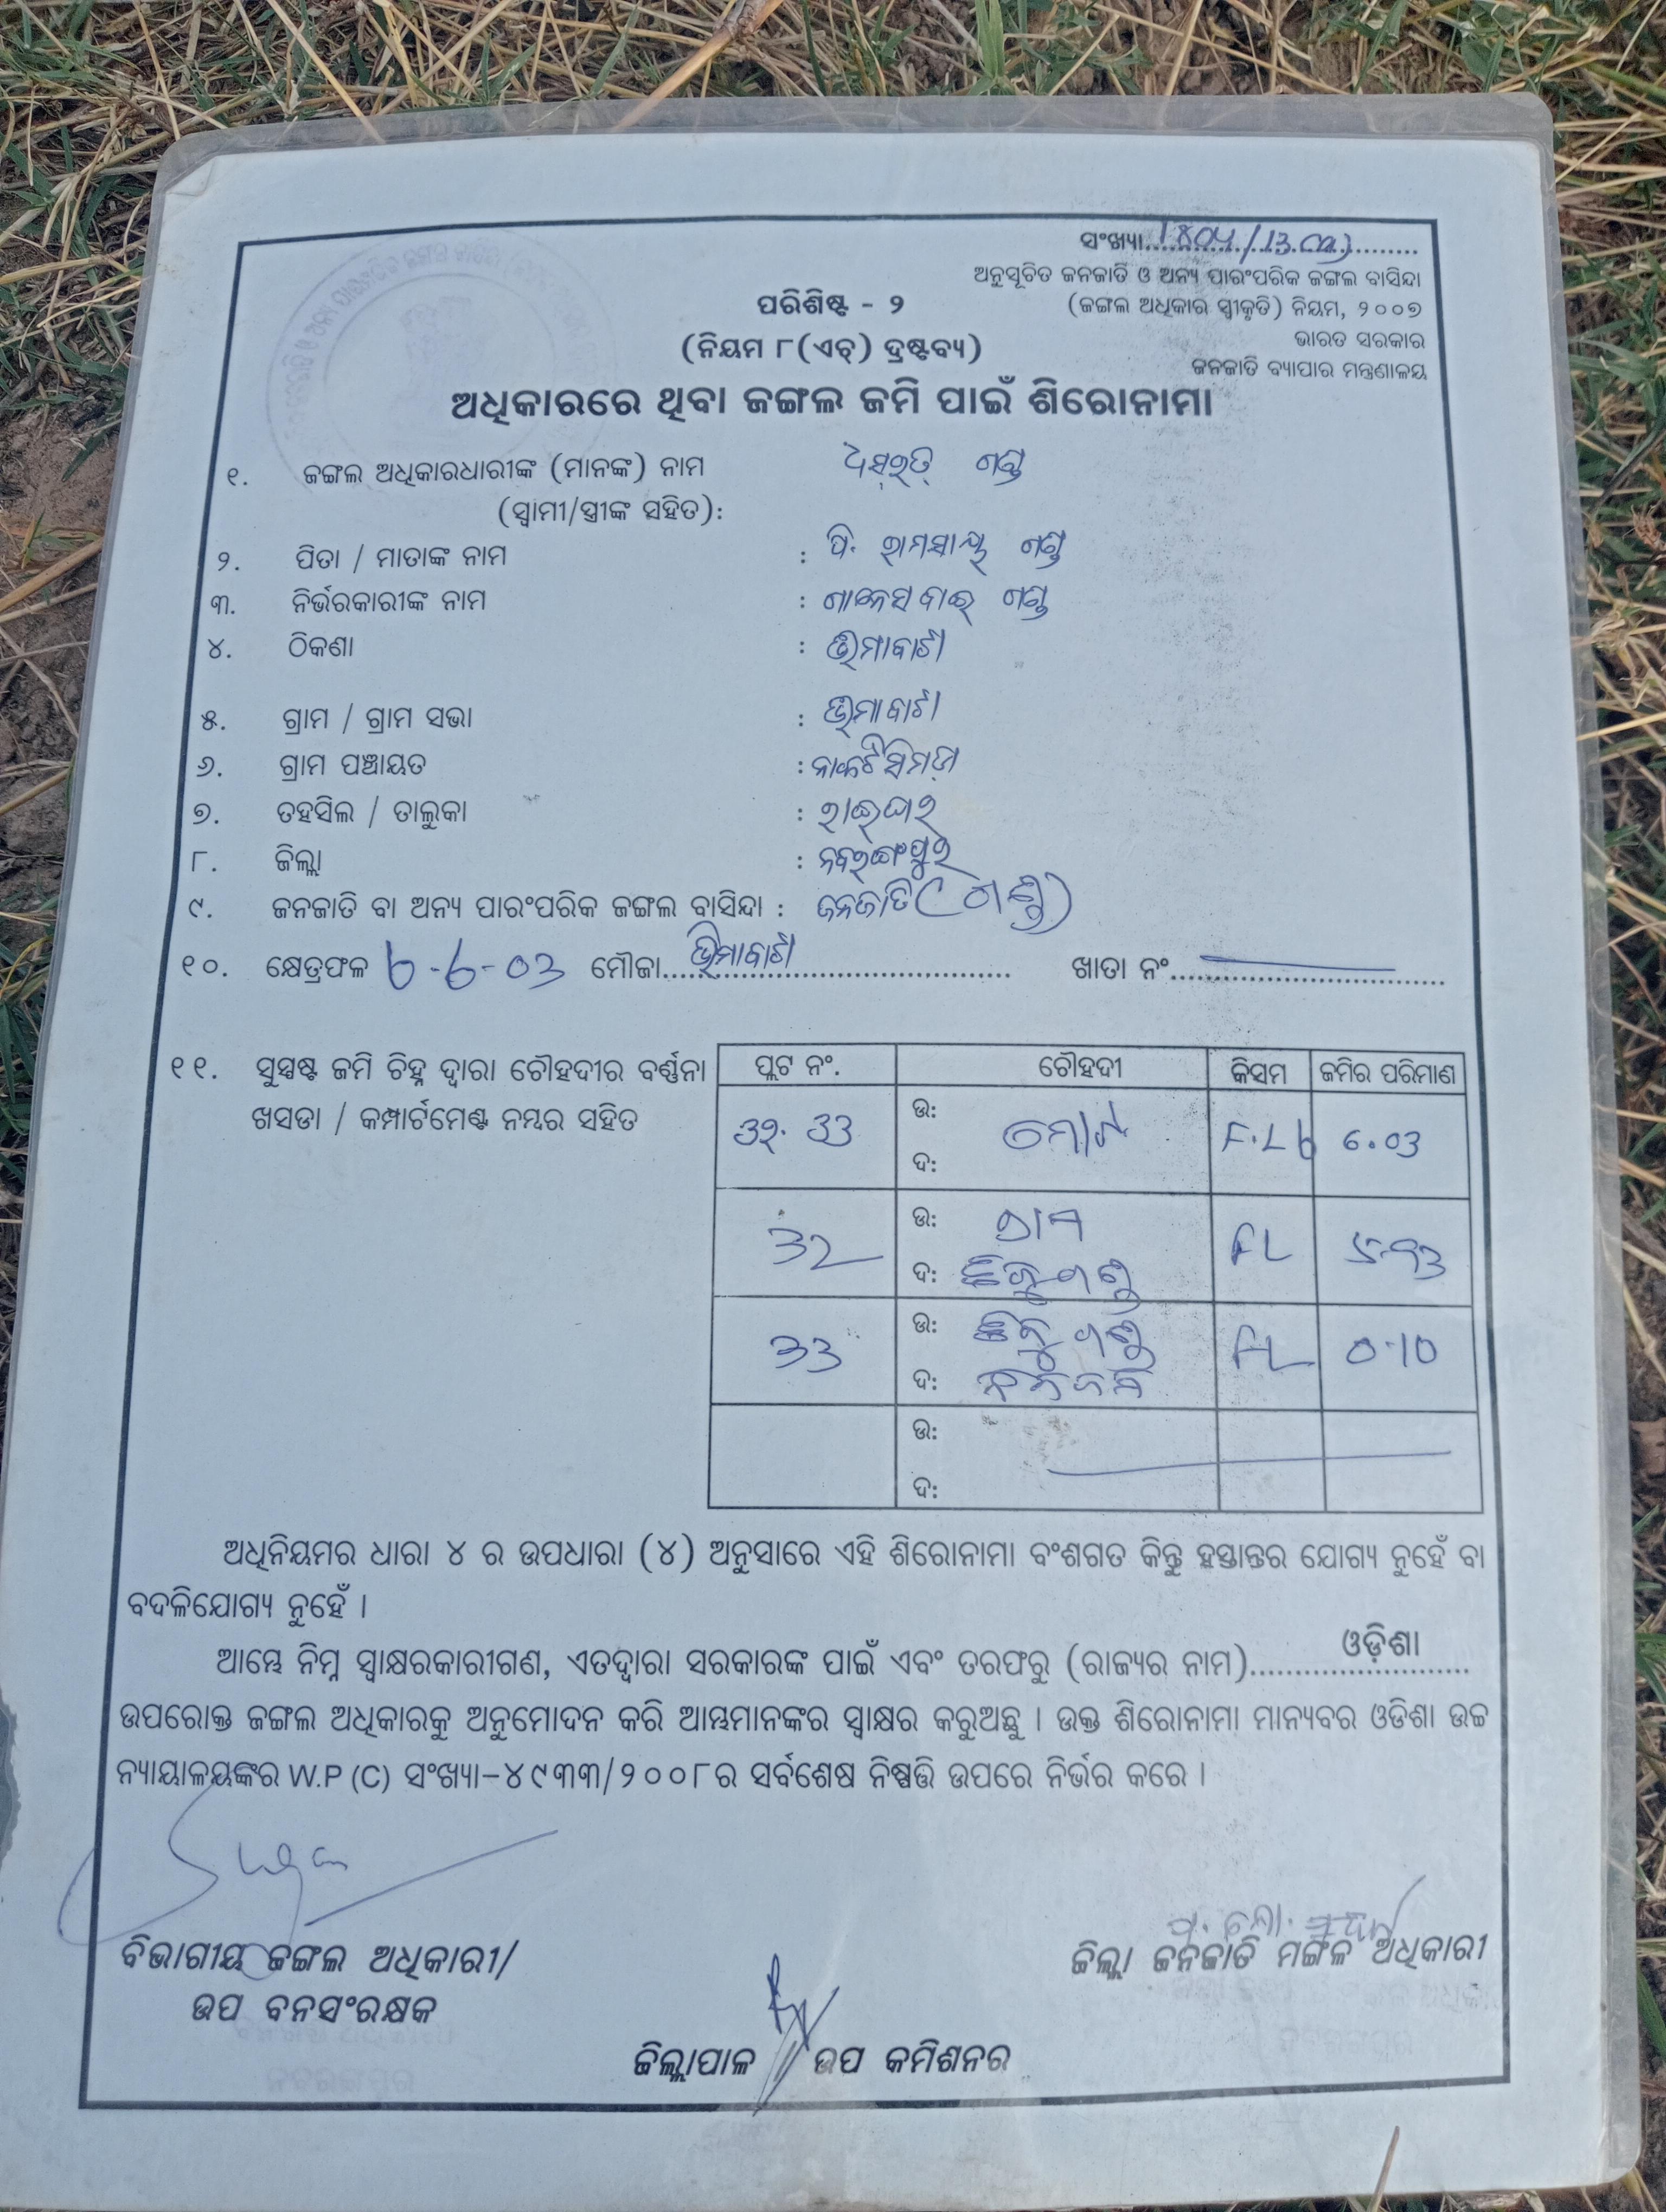 ସଂଖ୍ୟା
ଅନୁସୂଚିତ ଜନଜାତି ଓ ଅନ୍ୟ ପାରଂପରିକ ଜଙ୍ଗଲ ବାସିନ୍ଦା
(ଜଙ୍ଗଲ ଅଧିକାର ସ୍ୱୀକୃତି) ନିୟମ, ୨୦୦୭
ଭାରତ ସରକାର
ଜନଜାତି ବ୍ୟାପାର ମନ୍ତ୍ରଣାଳୟ
ପରିଶିଷ୍ଟ - ୨
(ନିୟମ ୮(ଏଚ୍) ଦ୍ରଷ୍ଟବ୍ୟ)
ଅଧିକାରରେ ଥିବା ଜଙ୍ଗଲ ଜମି ପାଇଁ ଶିରୋନାମା
୧. ଜଙ୍ଗଲ ଅଧିକାରଧାରୀଙ୍କ (ମାନଙ୍କ) ନାମ ଧସ୍‌ରତ୍ ଗଣ୍ଡ
(ସ୍ୱାମୀ/ସ୍ତ୍ରୀଙ୍କ ସହିତ):
୨. ପିତା / ମାତାଙ୍କ ନାମ : ପି. ରାମସାୟ୍ ଗଣ୍ଡ
୩. ନିର୍ଭରକାରୀଙ୍କ ନାମ : ଗଣ୍ଡ
୪. ଠିକଣା : ଭିମାବାଟା
୫. ଗ୍ରାମ / ଗ୍ରାମ ସଭା : ଭିମାବାଟା
୬. ଗ୍ରାମ ପଞ୍ଚାୟତ :
୭. ତହସିଲ / ତାଲୁକା : ରାଇଘର
୮. ଜିଲ୍ଲା : ନବରଙ୍ଗପୁର
୯. ଜନଜାତି ବା ଅନ୍ୟ ପାରଂପରିକ ଜଙ୍ଗଲ ବାସିନ୍ଦା : ଜନଜାତି (ଗଣ୍ଡ)
୧୦. କ୍ଷେତ୍ରଫଳ 6-03 ମୌଜା ଭିମାବାଟା ଖାତା ନଂ
୧୧. ସୁସ୍ପଷ୍ଟ ଜମି ଚିହ୍ନ ଦ୍ୱାରା ଚୌହଦୀର ବର୍ଣ୍ଣନା
ଖସଡା / କମ୍ପାର୍ଟମେଣ୍ଟ ନମ୍ବର ସହିତ
ପ୍ଲଟ ନଂ. ଚୌହଦୀ କିସମ ଜମିର ପରିମାଣ
ଉ:
33 6.03
ଦ:
ଉ:
32 FL 5.93
ଦ: ଗଣ୍ଡ
ଉ: ଗଣ୍ଡ
33 FL 0.10
ଦ:
ଉ:
ଦ:
ଅଧିନିୟମର ଧାରା ୪ ର ଉପଧାରା (୪) ଅନୁସାରେ ଏହି ଶିରୋନାମା ବଂଶଗତ କିନ୍ତୁ ହସ୍ତାନ୍ତର ଯୋଗ୍ୟ ନୁହେଁ ବା
ବଦଳିଯୋଗ୍ୟ ନୁହେଁ ।
ଆମ୍ଭେ ନିମ୍ନ ସ୍ୱାକ୍ଷରକାରୀଗଣ, ଏତଦ୍ୱାରା ସରକାରଙ୍କ ପାଇଁ ଏବଂ ତରଫରୁ (ରାଜ୍ୟର ନାମ) ଓଡ଼ିଶା
ଉପରୋକ୍ତ ଜଙ୍ଗଲ ଅଧିକାରକୁ ଅନୁମୋଦନ କରି ଆମ୍ଭମାନଙ୍କର ସ୍ୱାକ୍ଷର କରୁଅଛୁ । ଉକ୍ତ ଶିରୋନାମା ମାନ୍ୟବର ଓଡିଶା ଉଚ୍ଚ
ନ୍ୟାୟାଳୟଙ୍କର W.P (C) ସଂଖ୍ୟା-୪୯୩୩/୨୦୦୮ର ସର୍ବଶେଷ ନିଷ୍ପତ୍ତି ଉପରେ ନିର୍ଭର କରେ ।
ବିଭାଗୀୟ ଜଙ୍ଗଲ ଅଧିକାରୀ/
ଉପ ବନସଂରକ୍ଷକ
ଜିଲ୍ଲା ଜନଜାତି ମଙ୍ଗଳ ଅଧିକାରୀ
ଜିଲ୍ଲାପାଳ // ଉପ କମିଶନର